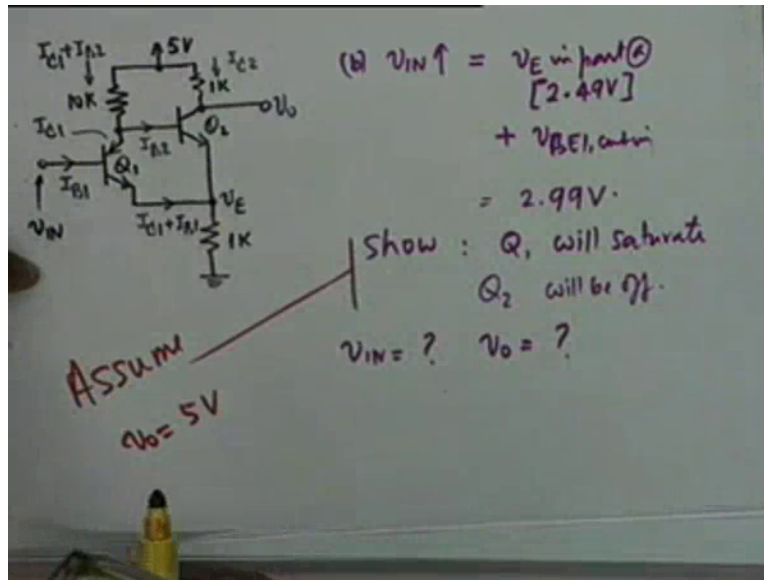 I_C1+I_B2
5V
I_C2
10K
1K
I_C1
I_B2
Q_2
v_O
I_B1
Q_1
v_IN
I_C1+I_B1
v_E
1K
(b) v_IN↑ = v_E in part (a)
[2.49V]
+ v_BE1, cut in
= 2.99V.
Show : Q_1 will saturate
Q_2 will be off.
v_IN = ? v_O = ?
Assume
v_O = 5V